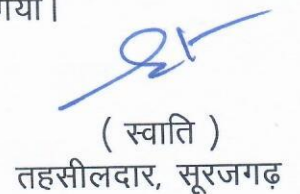 गया।
( स्वाति )
तहसीलदार, सूरजगढ़